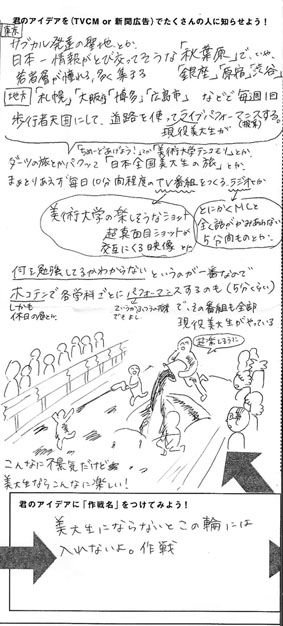 君のアイデアを(TVCM or 新聞広告)でたくさんの人に知らせよう!
東京
サブカル発進の聖地とか、
日本一情報がとび交ってそうな「秋葉原」で、いや、
若者層が憧れ、多く集まる「銀座」「原宿」「渋谷」
地方「札幌」「大阪」「博多」「広島市」などで毎週1回
歩行者天国にして、道路を使ってライブパフォーマンスする。
現役美大生が
ダーツの旅とかパクって「日本全国美大生の旅」とか
まぁとりあえず毎日10分間程度のTV番組をつくる。ラジオとか
美術大学の楽しそうなショット
超真面目ショットが
交互にくる映像とか
とにかくMCと
全く話がかみあわない
5分間ものとか、
何を勉強してるかわからないというのが一番なので
ホコテンで各学科ごとにパフォーマンスするのも(5分くらい)
しかも
休日の昼とか
で、その番組も全部
現役美大生がやっている
超楽しそうに
こんなに不景気だけど
美大生ならこんなに楽しい!
君のアイデアに「作戦名」をつけてみよう!
美大生にならないとこの輪には
入れないよ。作戦